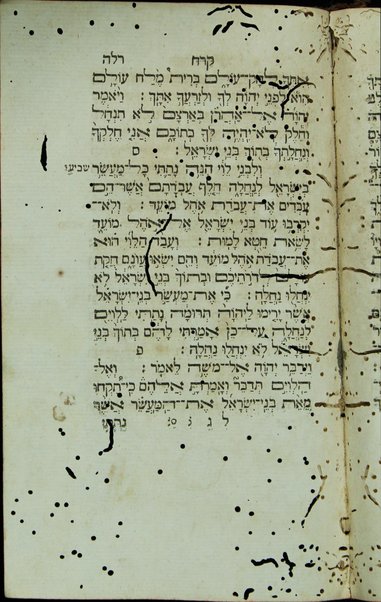 קרח רלה
אתך לחק־עולם ברית מלח עולם
הוא לפני יהוה לך ולזרעך אתך : ויאמר
יהוה אל־אהרן בארצם לא תנחל
וחלק לא־יהיה לך בתוכם אני חלקך
ונחלתך בתוך בני ישראל : ס
ולבני לוי הנה נתתי כל־מעשר שביעי
בישראל לנחלה חלף עבדתם אשר־הם
עבדים את־עבדת אהל מועד : ולא־
יקרבו עוד בני ישראל אל־אהל מועד
לשאת חטא למות : ועבד הלוי הוא
את־עבדת אהל מועד והם ישאו עונם חקת
עולם לדרתיכם ובתוך בני ישראל לא
ינחלו נחלה : כי את־מעשר בני־ישראל
אשר ירימו ליהוה תרומה נתתי ללוים
לנחלה על־כן אמרתי להם בתוך בני
ישראל לא ינחלו נחלה : פ
וידבר יהוה אל־משה לאמר : ואל־
הלוים תדבר ואמרת אלהם כי־תקחו
מאת בני־ישראל את־המעשר אשר
נתתי